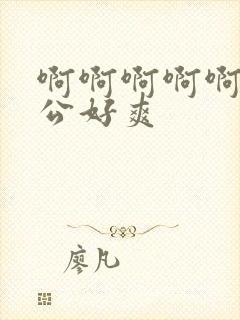 啊啊啊啊啊
公好爽
廖凡